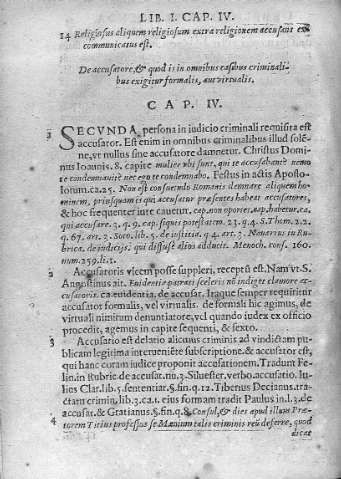 LIB. I. CAP. IV.
14 Religiosus aliquem religiosum extra religionem accusans ex
communicatus est.
De accusatore, & quod is in omnibus casibus criminali-
bus exigitur formalis, aut virtualis.
CAP. IV.
SECVNDA persona in iudicio criminali requisita est
accusator. Est enim in omnibus criminalibus illud solē-
ne, vt nullus sine accusatore damnetur. Christus Domi-
nus Ioannis. 8. capite mulier vbi sunt, qui te accusabant? nemo
te condemnauit? nec ego te condemnabo. Festus in actis Aposto-
lorum. ca. 25. Non est consuetudo Romanis damnare aliquem ho-
minem, priusquam is qui accusatur præsentes habeat accusatores,
& hoc frequenter iure cauetur. cap. non oportet. cap. habetur. ca.
qui accusare. 3. q. 9. cap. si quis potestatem. 23. q. 4. S. Thom. 2. 2.
q. 67. art. 2. Soto. lib. 5. de iustitia. q. 4. art. Nauarrus in Ru-
brica. de iudicijs, qui diffuse alios adducit. Menoch. cons. 160.
num. 259. li. 2.
2 Accusatoris vicem posse suppleri, receptū est. Nam vt S.
Augustinus ait. Euidentia patrati sceleris nō indiget clamore ac-
cusatoris. ca. euidentia. de accusat. Itaque semper requiritur
accusator formalis, vel virtualis. de formali hic agimus, de
virtuali nimirum denuntiatore, vel quando iudex ex officio
procedit, agemus in capite sequenti, & sexto.
3 Accusatio est delatio alicuius criminis ad vindictam pu-
blicam legitima interueniēte subscriptione. & accusator est,
qui hanc coram iudice proponit accusationem. Tradunt Fe-
lin. in Rubric. de accusat. nu. 3. Siluester. verbo. accusatio. Iu-
lius Clar. lib. 5. sententiar. §. fin. q. 12. Tiberius Decianus. tra-
ctat. crimin. lib. 3. ca. 1. eius formam tradit Paulus in. l. 3. de
accusat. & Gratianus. §. fin. q. 8. Consul, & dies apud illum Præ-
4 torem Titius professus se Mæuium talis criminis reū deferre, quod
dicat